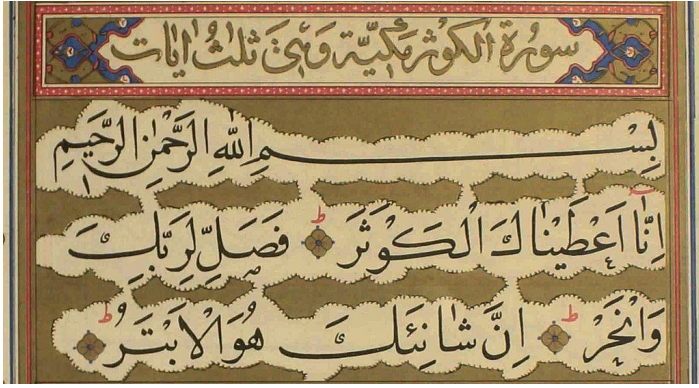 سورة الكوثر مكية وهي ثلث ايات
بِسْمِ اللّٰهِ الرَّحْمٰنِ الرَّحِيمِ
اِنَّا اَعْطَيْنَاكَ الْكَوْثَرَ ط فَصَلِّ لِرَبِّكَ
وَانْحَرْ ط اِنَّ شَانِئَكَ هُوَ الْاَبْتَرُ ط